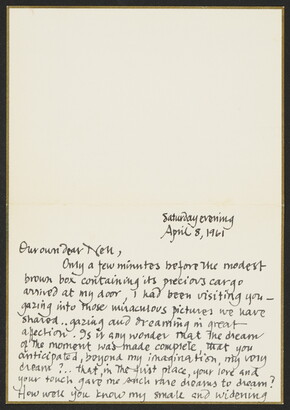 Saturday evening
April 8, 1961
Our own dear Nell,
Only a few minutes before the modest
brown box containing its precious cargo
arrived at my door, I had been visiting you —
gazing into those miraculous pictures we have
shared... gazing and dreaming in great
affection. Is it any wonder that the dream
of the moment was made complete, that you
anticipated, beyond my imagination, my very
dream?... that, in the first place, your love and
your touch gave me such rare dreams to dream?
How well you know my small and widening